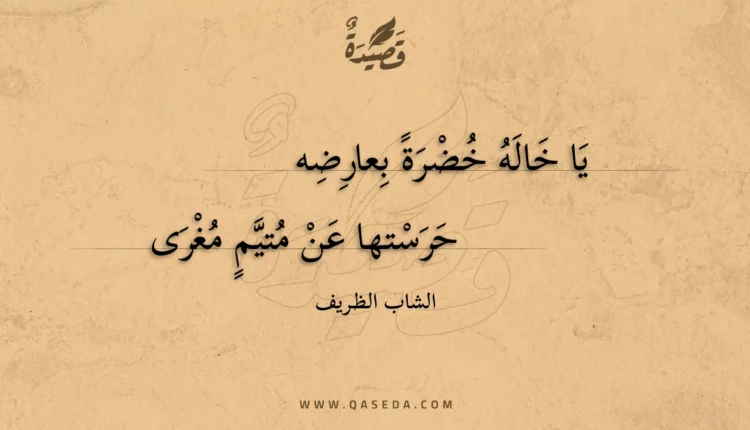 قَصِيدَةٌ
يَا خَالَهُ خُضْرَةً بِعارِضِه
حَرَسْتها عَنْ مُتيَّمٍ مُغْرَى
الشاب الظريف
WWW.QASEDA.COM